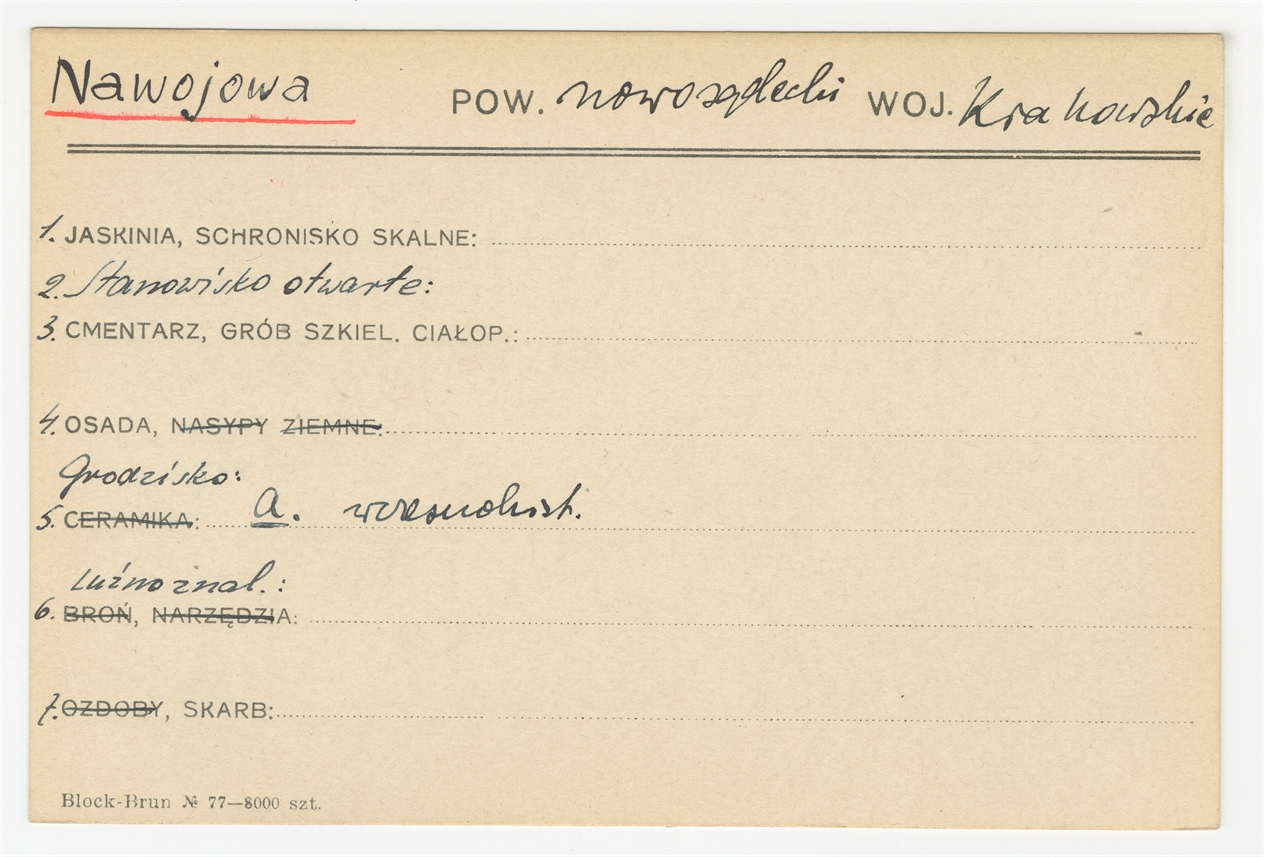 Nawojowa POW. nowosądecki WOJ. Krakowskie
1. JASKINIA, SCHRONISKO SKALNE:
2. Stanowisko otwarte:
3. CMENTARZ, GRÓB SZKIEL. CIAŁOP.:
4. OSADA, NASYPY ZIEMNE:
Grodzisko:
5. CERAMIKA: a. wczesnohist.
Luźno znal.:
6. BROŃ, NARZĘDZIA:
7. OZDOBY, SKARB:
Block-Brun № 77—8000 szt.